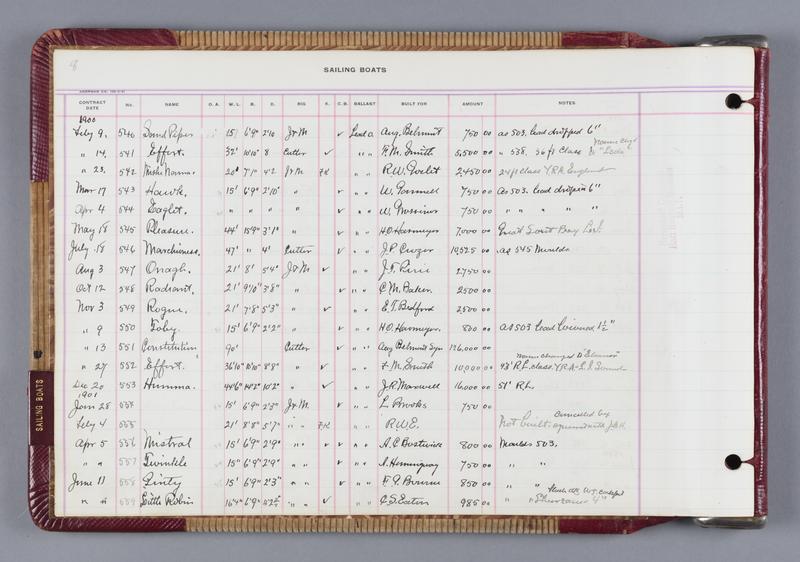 8
SAILING BOATS
CONTRACT DATE No. NAME O. A. W. L. B. D. RIG K. C. B. BALLAST BUILT FOR AMOUNT NOTES
1900
Feby 9, 540 Sand Piper 15' 6'9" 2'10 J & M ✓ Lead o Aug. Belmont 750 00 as 503. lead dropped 6"
" 14, 541 Effort. 32' 10'10" 8 Cutter ✓ " " F. M. Smith 5,500 00 " 538. 36 ft Class name chgd to "Leda"
" 23, 542 20' 7'1" 4'2 J & M FK " " R.W. Goelet 2,450 00 24 ft class Y.R.A. England
Mar 17 543 Hawk. 15' 6'9" 2'10" " ✓ " " W. 750 00 As 503. lead 6"
Apr 4 544 Eaglet. " " " " ✓ " " W. 750 00 " " " " "
May 18 545 Pleasure. 44' 15'9" 3'1" " ✓ " " H.O. Havemeyer 7,000 00 Great South Bay
July 18 546 Marchioness. 47' " 4' Cutter ✓ " " J.P. Cruger 10,525 00 as 545 Moulds
Aug 3 547 Onagh. 21' 8' 5'4" J & M ✓ " " J.F. 2750 00
Oct 12 548 Radiant. 21' 9'10" 3'8" " ✓ " " C.M. Baker. 2500 00
Nov 3 549 Rogue. 21' 7'8" 5'3" " ✓ " " E.T. Bedford 2,500 00
" 9 550 Toby. 15' 6'9" 2'2" " ✓ " " H.O. Havemeyer. 800 00 as 503 lead lowered 1½"
" 13 551 Constitution 90' Cutter ✓ " " Aug Belmont Syn 126,000 00
" 27 552 Effort. 36'10" 10'10" 8'8" " ✓ " " F.M. Smith 10,000 00 name changed to "Eleanor" 43' R.L. class. Y.R.A. L.I. Sound
Dec 20 553 Humma. 44'6" 12'2" 10'2" " ✓ " " J.R. Maxwell 16,000 00 51' R.L.
1901
Jan 28 554 15' 6'9" 2'3" J & M. ✓ " " L. Brooks 750 00
Feby 4 555 21' 8'8" 5'7" " " FK " " R.W.E. Not built cancelled by
Apr 5 556 Mistral 15' 6'9" 2'9" " " ✓ ✓ " " A.C. Bostwick 800 00 Moulds 503.
" " 557 Twinkle 15" 6'9" 2'9" " " ✓ " " A. Hemingway 750 00 " "
June 11 558 Linty 15' 6'9" 2'3" " " ✓ " " F.G. Bourne 850 00 " "
" " 559 Little Robin 16'4" 6'9" " " ✓ " " C.S. Eaton 985 00 " "
SAILING BOATS